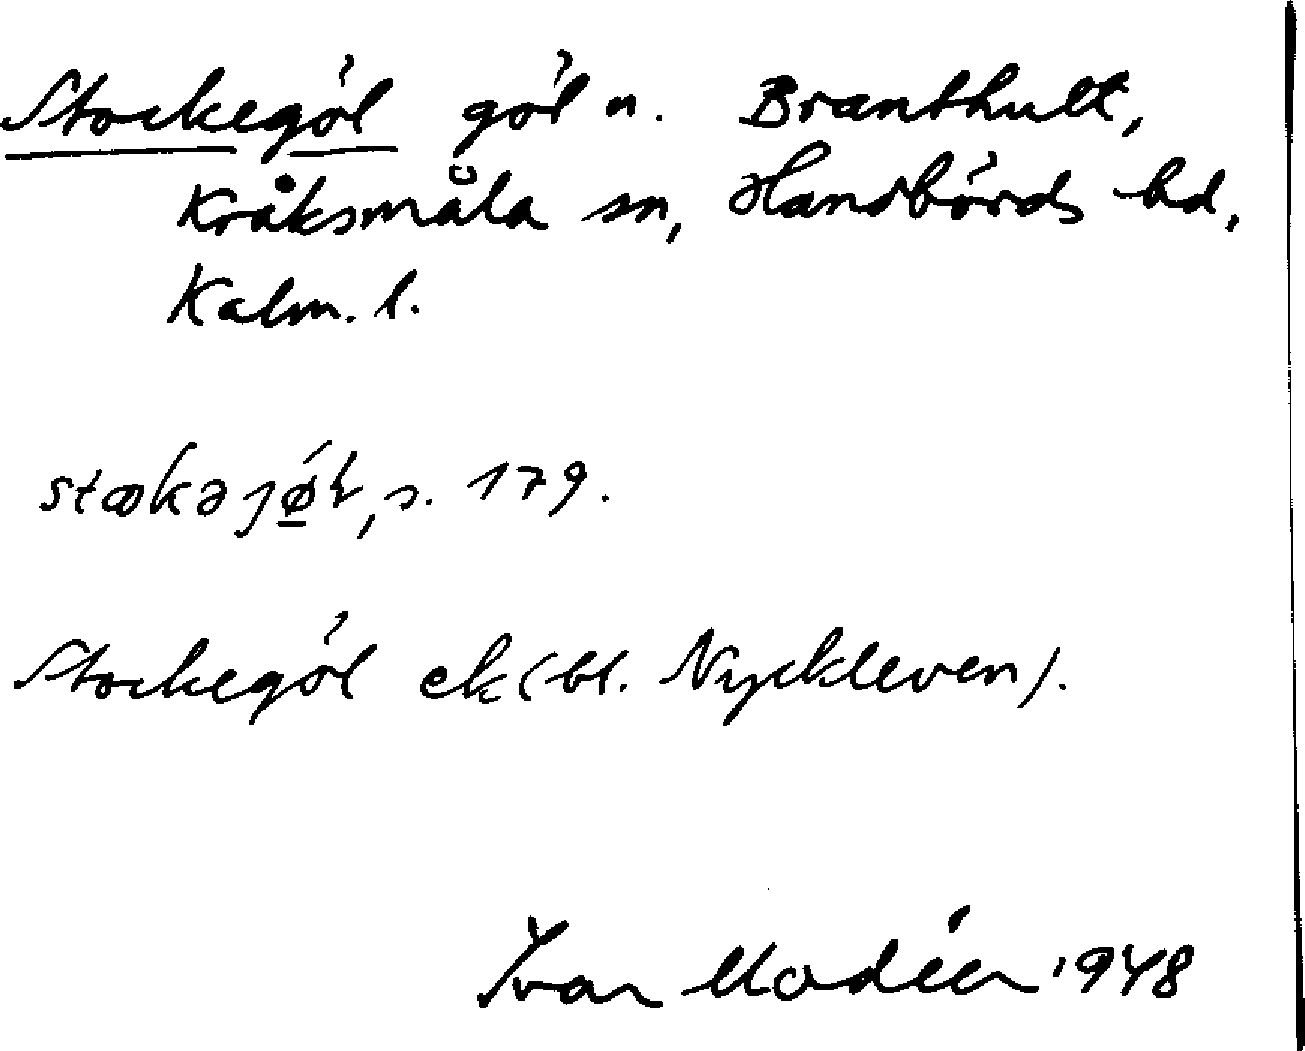 Stockegöl göl n. Branthult,
Kråksmåla sn, Handbörds hd,
Kalm. l.
s. 179.
Stockegöl ek (bl. Nyckleven).
Ivar Modéer 1948